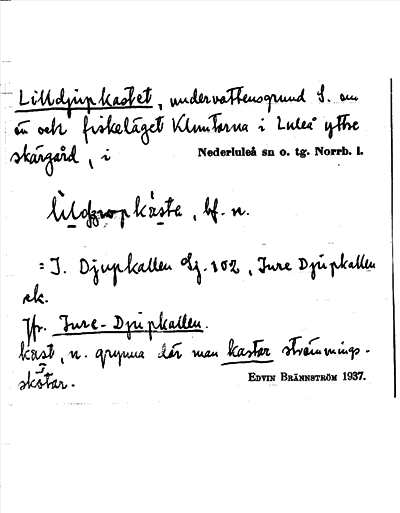 Lilldjupkastet, undervattensgrund S. om
ön och fiskeläget Kluntarna i Luleå yttre
skärgård, i Nederluleå sn o. tg. Norrb. l.
bf. n.
= I. Djupkallen Sj. 102, Inre Djupkallen
ek.
Jfr. Inre-Djupkallen.
kast, n. grynna där man kastar strömmings-
skötar. Edvin Brännström 1937.